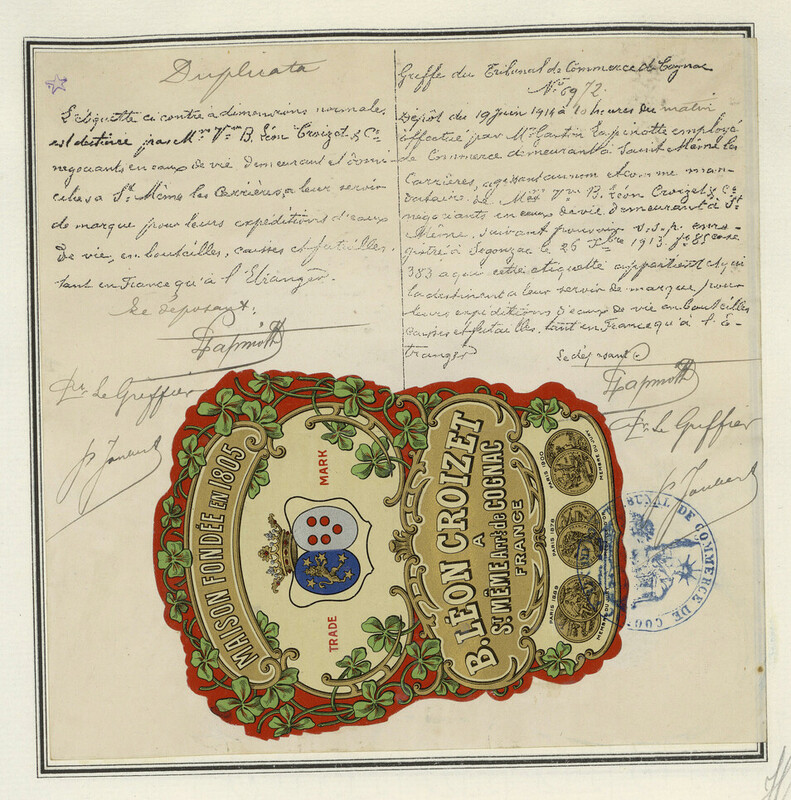 Duplicata
L'étiquette ci contre à dimensions normales
est destinée par Mrs Vve B. Léon Croizet & Cie
négociants en eaux de vie demeurant et domi-
ciliés à St Même les Carrières, à leur servir
de marque pour leurs expéditions d'eaux
de vie, en bouteilles, caisses et futailles,
tant en France qu'à l'Etranger.
Le déposant:
Lapinotte
Pr. Le Greffier
Joubert
Greffe du Tribunal de Commerce de Cognac
No 6972.
Dépôt du 19 Juin 1914 à 10 heures du matin
effectué par Mr Gaston Lapinotte employé
de Commerce demeurant à Saint Même les
Carrières, agissant au nom et comme man-
dataire de Mrs Vve B. Léon Croizet & Cie
négociants en eaux de vie, demeurant à St
Même, suivant pouvoir s.s.p. enre-
gistré à Segonzac le 26 1913. fo 85 case
383 a qui cette etiquette appartient et qui
la destinent a leur servir de marque, pour
leurs expéditions d'eaux de vie en bouteilles
caisses et futailles, tant en France qu'à l'é-
tranger
Le déposant
Lapinotte
Pr. Le Greffier
Joubert
MAISON FONDÉE EN 1805
TRADE MARK
B. LÉON CROIZET
A
ST MÊME Arrt de COGNAC
FRANCE
PARIS 1900
MEMBRE DU JURY
PARIS 1878
PARIS 1889
MEMBRE DU
TRIBUNAL DE COMMERCE DE COG